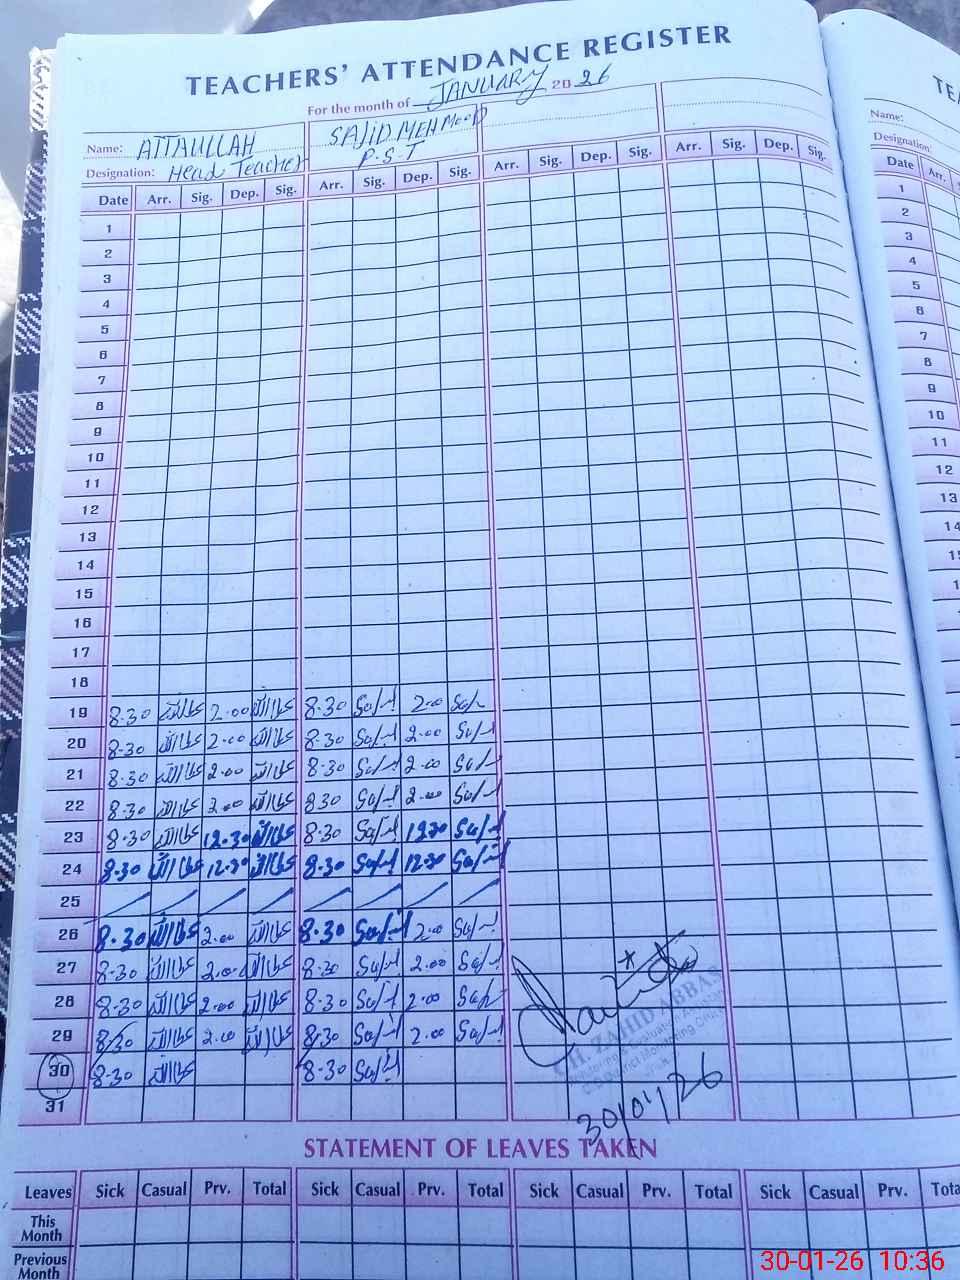 TEACHERS' ATTENDANCE REGISTER
For the month of JANUARY 2026
Name: ATTAULLAH SAJID MEHMOOD
Designation: Head Teacher P.S.T
Date Arr. Sig. Dep. Sig. Arr. Sig. Dep. Sig. Arr. Sig. Dep. Sig. Arr. Sig. Dep. Sig.
1
2
3
4
5
6
7
8
9
10
11
12
13
14
15
16
17
18
19 8.30 2.00 8.30 2.00
20 8.30 2.00 8.30 2.00
21 8.30 2.00 8.30 2.00
22 8.30 2.00 8.30 2.00
23 8.30 12.30 8.30 12.30
24 8.30 12.30 8.30 12.30
25
26 8.30 2.00 8.30 2.00
27 8.30 2.00 8.30 2.00
28 8.30 2.00 8.30 2.00
29 8.30 2.00 8.30 2.00
30 8.30 8.30
31
CH. ZAHID ABBAS
Monitoring & Evaluation Assistant
30/01/26
STATEMENT OF LEAVES TAKEN
Leaves Sick Casual Prv. Total Sick Casual Prv. Total Sick Casual Prv. Total Sick Casual Prv.
This Month
Previous Month
Name:
Designation:
Date Arr.
1
2
3
4
5
6
7
8
9
10
11
12
13
14
30-01-26 10:36